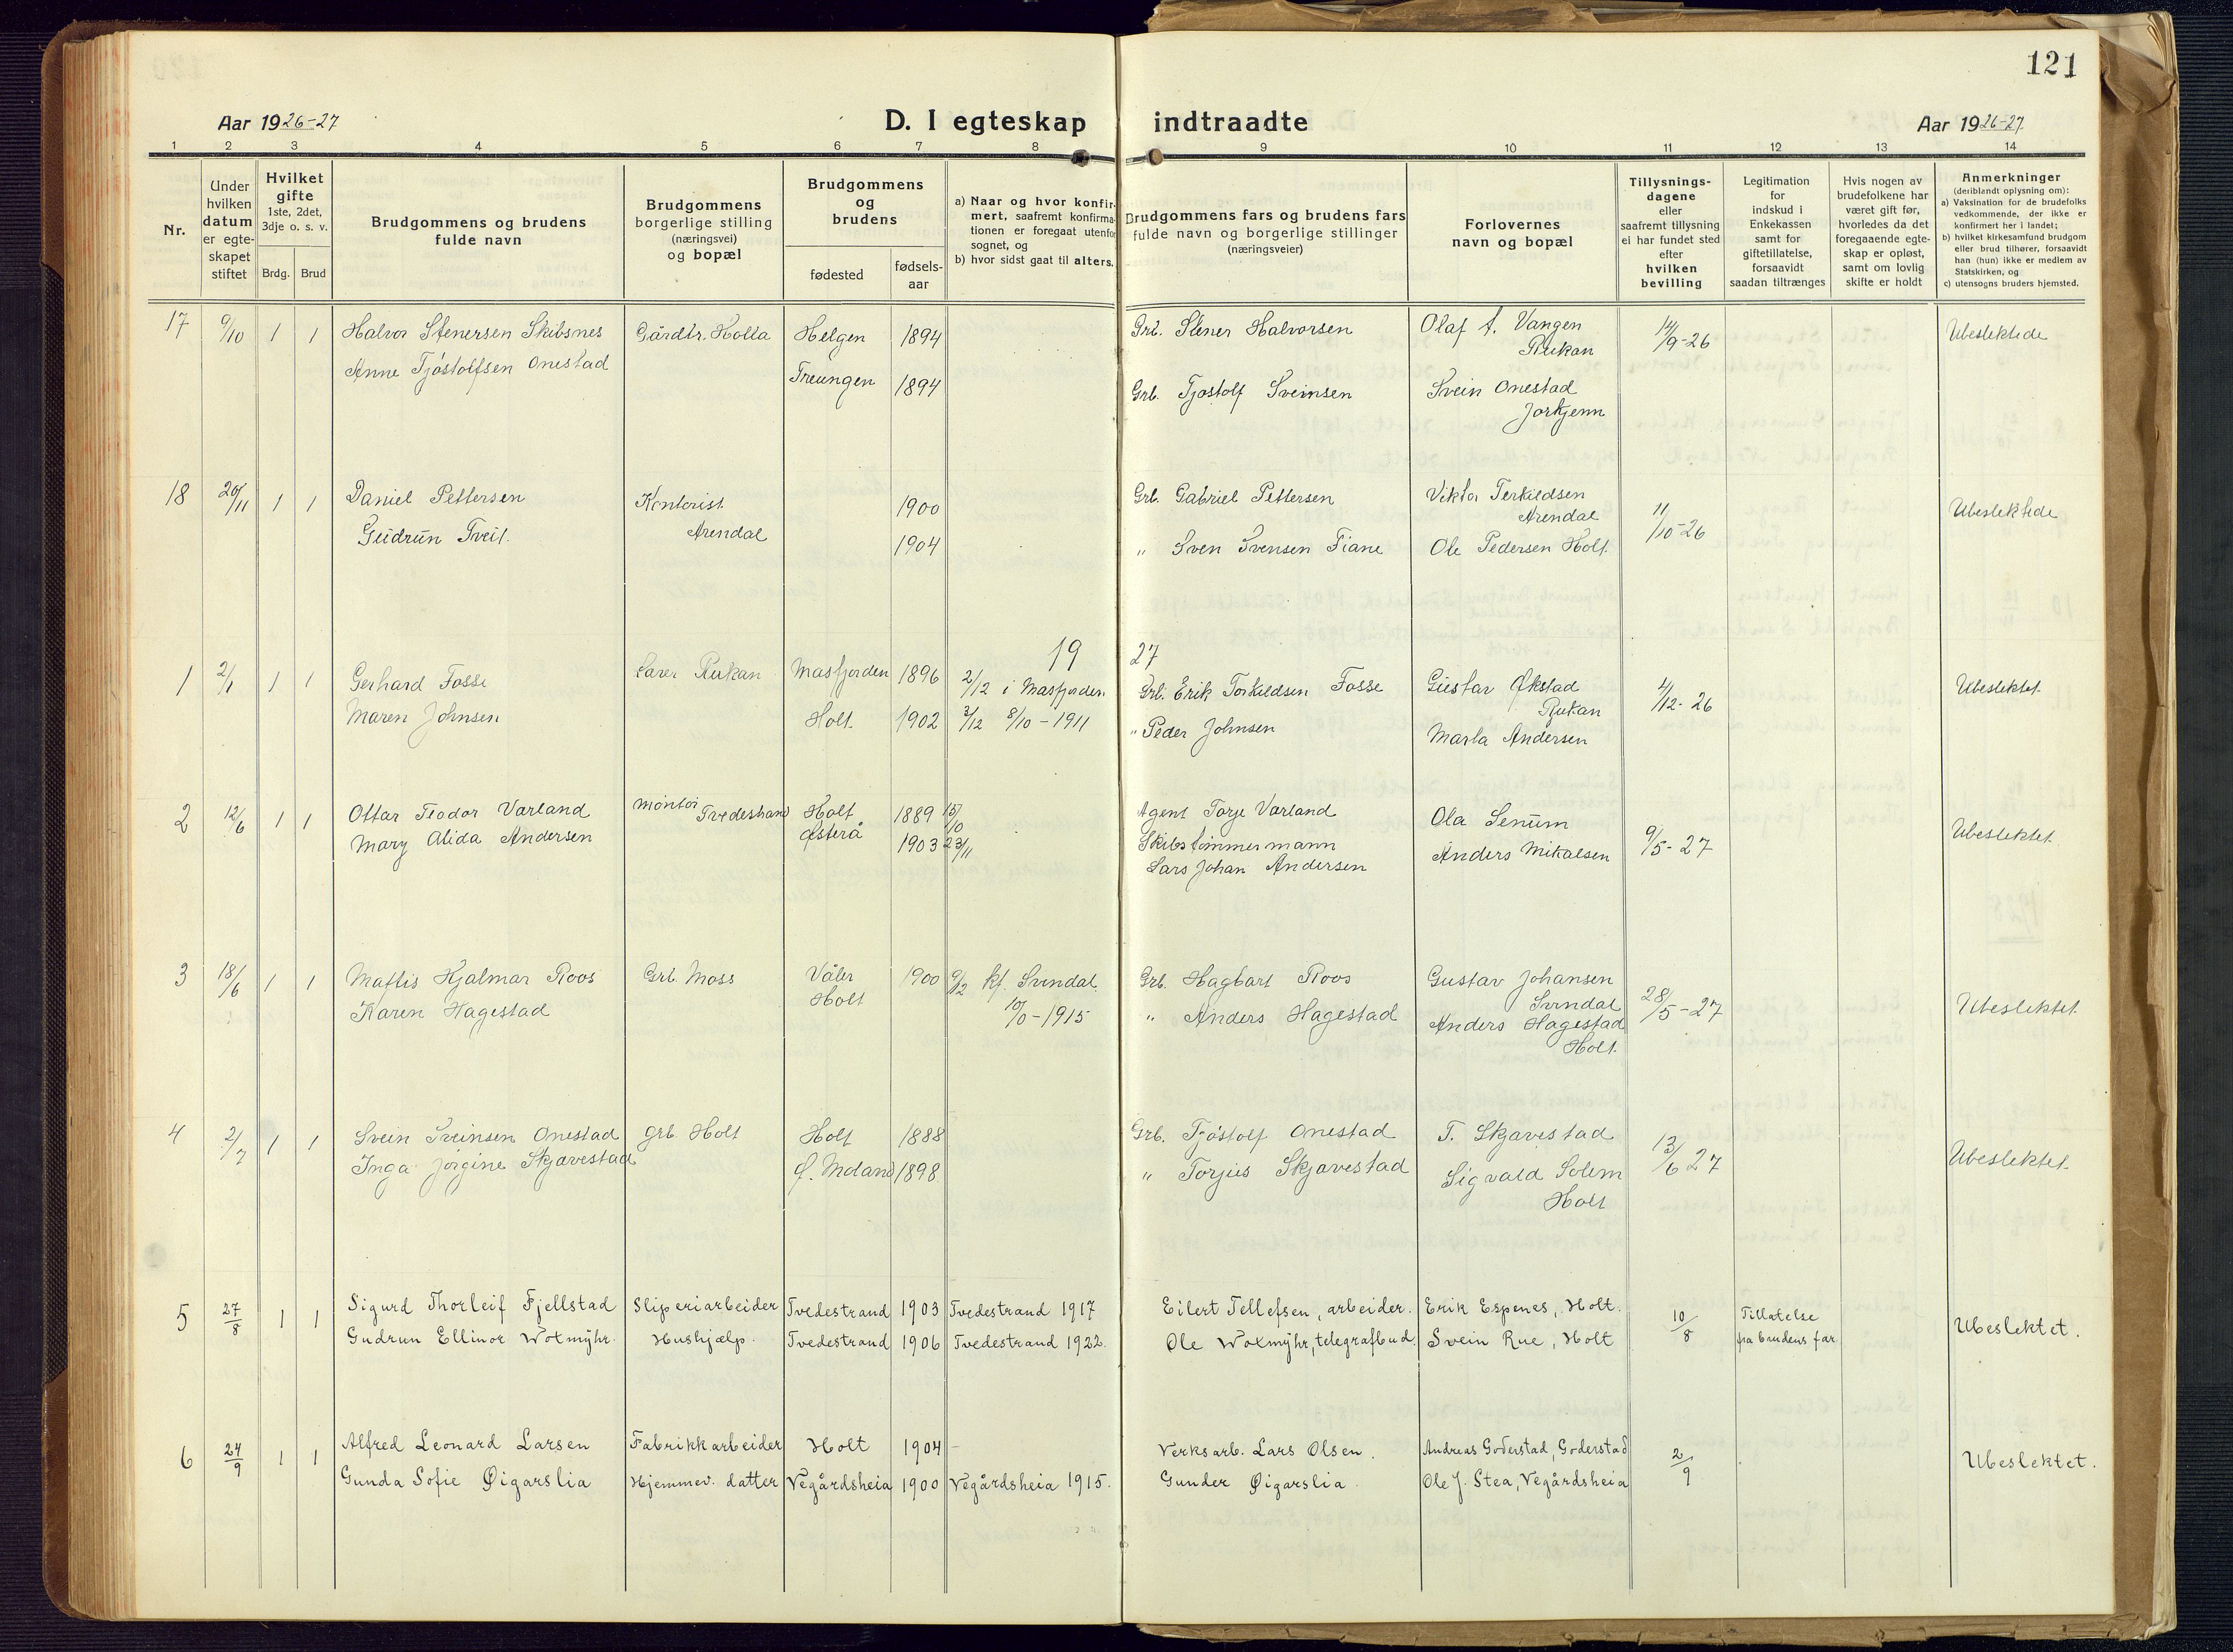 121
Aar 1926-27
D. I egteskap indtraadte
Aar 1926-27
1 2 3 4 5 6 7 8 9 10 11 12 13 14
Nr.
Under
hvilken
datum
er egte-
skapet
stiftet
Hvilket
gifte
1ste, 2det,
3dje o. s. v.
Brdg. Brud
Brudgommens og brudens
fulde navn
Brudgommens
borgerlige stilling
(næringsvei)
og bopæl
Brudgommens
og
brudens
fødested
fødsels-
aar
a) Naar og hvor konfir-
mert, saafremt konfirma-
tionen er foregaat utenfor
sognet, og
b) hvor sidst gaat til alters.
Brudgommens fars og brudens fars
fulde navn og borgerlige stillinger
(næringsveier)
Forlovernes
navn og bopæl
Tillysnings-
dagene
eller
saafremt tillysning
ei har fundet sted
efter
hvilken
bevilling
Legitimation
for
indskud i
Enkekassen
samt for
giftetillatelse,
forsaavidt
saadan tiltrænges
Hvis nogen av
brudefolkene har
været gift før,
hvorledes da det
foregaaende egte-
skap er opløst,
samt om lovlig
skifte er holdt
Anmerkninger
(deriblandt oplysning om):
a) Vaksination for de brudefolks
vedkommende, der ikke er
konfirmert her i landet;
b) hvilket kirkesamfund brudgom
eller brud tilhører, forsaavidt
han (hun) ikke er medlem av
Statskirken, og
c) utensogns bruders hjemsted.
17 9/10 1 1 Halvor Stenersen Skibsnes Gårdbr. Holla Helgen 1894 Grb. Stener Halvorsen Olaf A. Vangen 14/9-26 Ubeslektede
Rukan
Anne Tjöstolfsen Onestad Treungen 1894 Grb. Tjøstolf Sveinsen Svein Onestad
Jorkjenn
18 20/11 1 1 Daniel Pettersen Kontorist 1900 Grb. Gabriel Pettersen Viktor Terkildsen 11/10-26 Ubeslektede
Arendal Arendal
Gudrun Tveit. 1904 " Sven Svensen Fiane Ole Pedersen Holt.
19 27
1 2/1 1 1 Gerhard Fosse Rukan Masfjorden 1896 2/12 i Masfjorden Grb. Erik Torkildsen Fosse Gustav Økstad 4/12-26 Ubeslektet.
Rukan
Maren Johnsen Holt. 1902 3/12 8/10-1911 " Peder Johnsen Marta Andersen
2 12/6 1 1 Ottar Teodor Varland Montør Tvedestrand Holt 1889 15/10 Agent Torje Varland Ola Senum 9/5-27 Ubeslektet.
Mary Alida Andersen Østerå 1903 23/11 Skibstømmermann Anders Mikalsen
Lars Johan Andersen
3 18/6 1 1 Mattis Hjalmar Roos Grb. Moss Våler 1900 9/2 kf. Svindal. Grb. Hagbart Roos Gustav Johansen 28/5-27 Ubeslektet.
Svindal
Karen Hagestad Holt 10/10-1915 " Anders Hagestad Anders Hagestad
Holt.
4 2/7 1 1 Svein Sveinsen Onestad grb Holt Holt 1888 Grb. Tjöstolf Onestad T. Skjævestad 13/6 27 Ubeslektet.
Inga Jörgine Skjævestad Ø. Moland 1898. " Torjus Skjævestad Sigvald Solem
Holt
5 27/8 1 1 Sigurd Thorleif Fjellstad Sliperiarbeider Tvedestrand 1903 Tvedestrand 1917 Eilert Tellefsen, arbeider. Erik Espenes, Holt. 10/8 Tillatelse Ubeslektet.
Gudrun Ellinor Woxmyhr. Hushjælp. Tvedestrand 1906 Tvedestrand 1922. Ole Woxmyhr, telegrafbud. Svein Rue, Holt fra brudens far.
6 24/9 1 1 Alfred Leonard Larsen Fabrikkarbeider Holt 1904 - Verksarb. Lars Olsen. Andreas Goderstad, Goderstad 2/9 Ubeslektet.
Gunda Sofie Øigarslia Hjemmev. datter Vegårdsheia 1900 Vegårdsheia 1915. Gunder Øigarslia. Ole J. Stea, Vegårdsheia